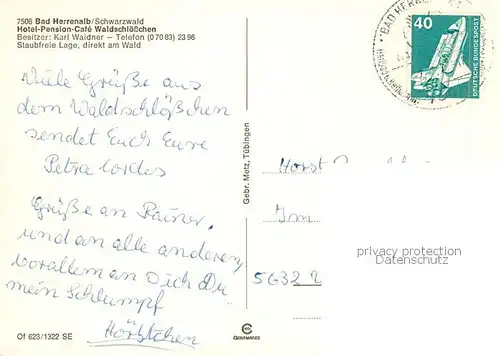 7506 Bad Herrenalb/Schwarzwald
Hotel-Pension-Café Waldschlößchen
Besitzer: Karl Waidner – Telefon (0 70 83) 23 96
Staubfreie Lage, direkt am Wald
Viele Grüße aus
dem Waldschlößchen
sendet Euch Eure
Petra Cordes
Grüße an Rainer,
und an alle anderen,
vorallem an Dich Du
mein Schlumpf
Hörstchen
Of 623/1322 SE
Gebr. Metz, Tübingen
BAD HERRENALB
40
DEUTSCHE BUNDESPOST
Horst
Im
5632
privacy protection
Datenschutz